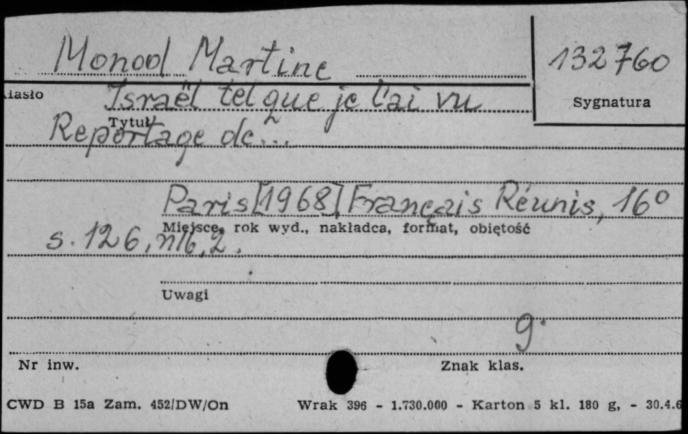 Monod Martine
132760
Sygnatura
iasło
Israël tel que je l'ai vu
Tytuł
Reportage de...
Paris [1968] Français Réunis, 16°
Miejsce, rok wyd., nakładca, format, objętość
s. 126, nlb, 2.
Uwagi
9.
Nr inw.
Znak klas.
CWD B 15a Zam. 452/DW/On Wrak 396 - 1.730.000 - Karton 5 kl. 180 g, - 30.4.6